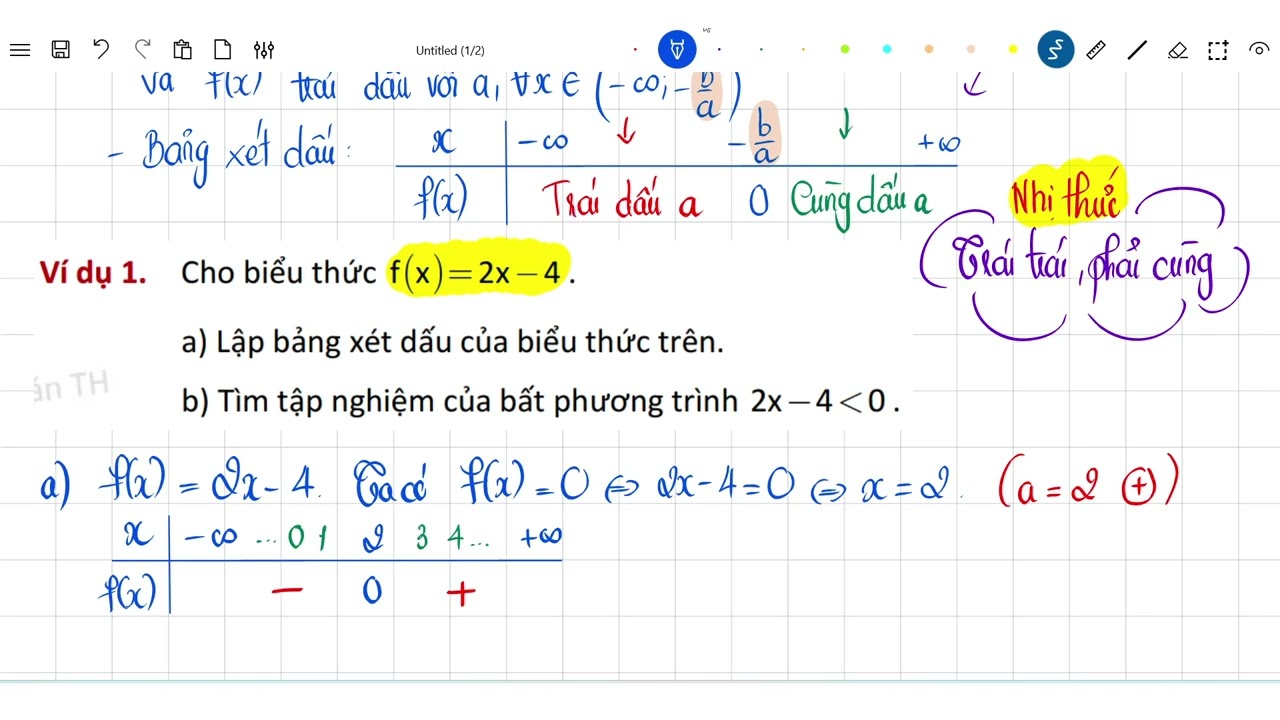 Untitled (1/2)
và f(x) trái dấu với a, ∀x ∈ (-∞; -b/a)
- Bảng xét dấu: x | -∞ ↓ -b/a ↓ +∞
f(x) | Trái dấu a 0 Cùng dấu a
Nhị thức
(Trái trái, phải cùng)
Ví dụ 1. Cho biểu thức f(x)=2x−4.
a) Lập bảng xét dấu của biểu thức trên.
án TH
b) Tìm tập nghiệm của bất phương trình 2x−4<0.
a) f(x) = 2x-4. Ta có f(x)=0 ⇔ 2x-4=0 ⇔ x=2. (a=2 ⊕)
x | -∞ ...0 1 2 3 4... +∞
f(x) | − 0 +